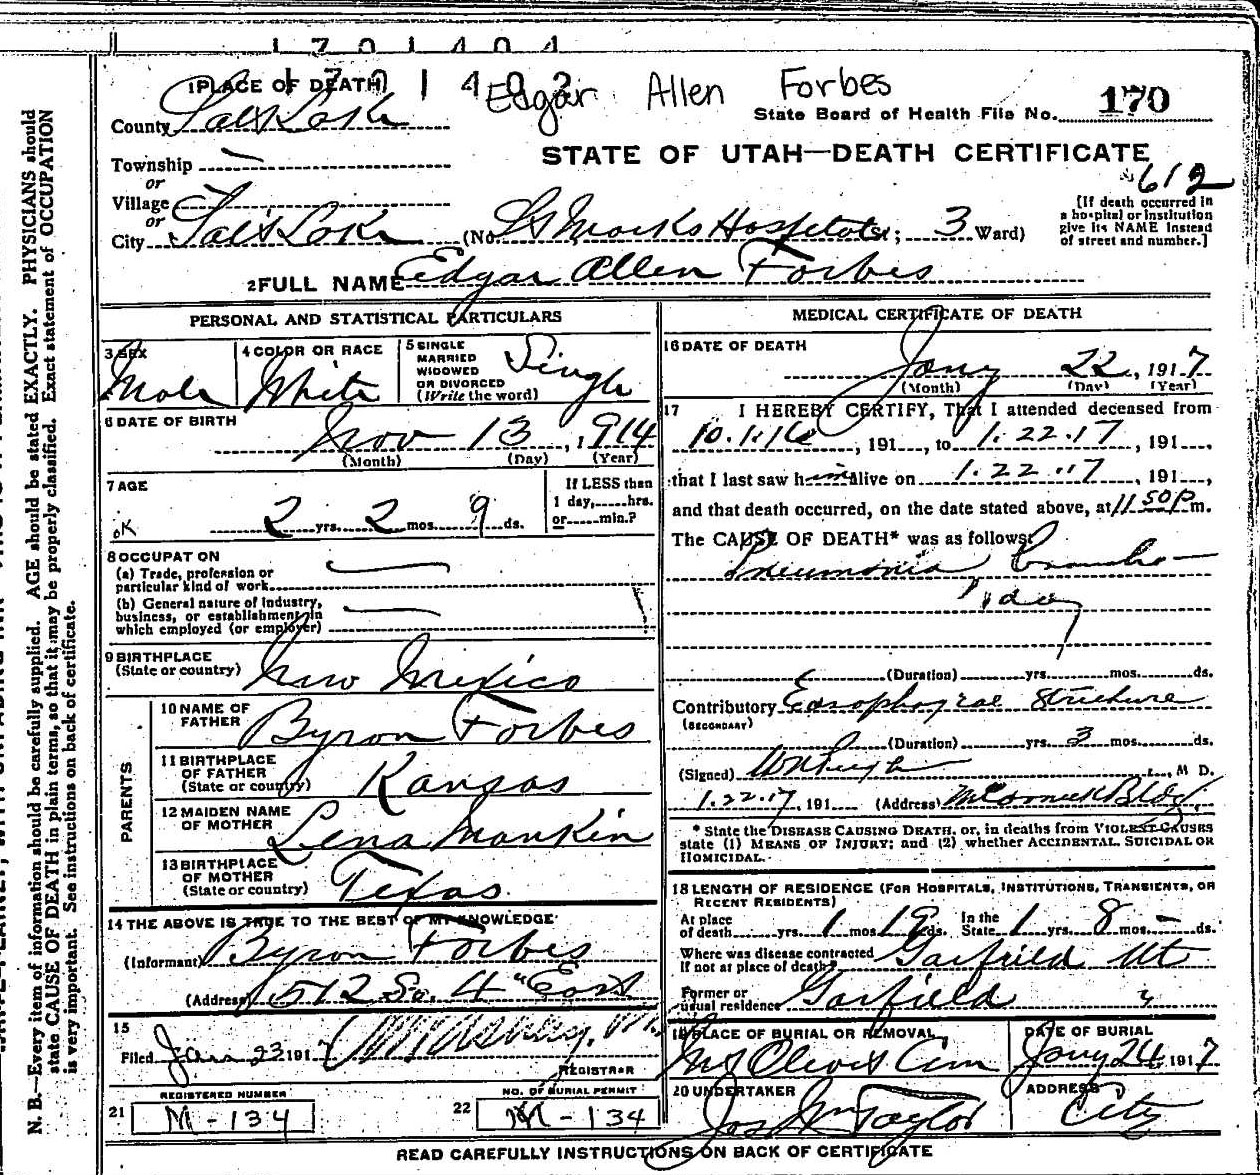 1701404
1 PLACE OF DEATH 1701402 Edgar Allen Forbes
State Board of Health File No. 170
County Salt Lake
STATE OF UTAH—DEATH CERTIFICATE
Township —
or
Village
or
City Salt Lake (No. St Marks Hospital St; 3 Ward)
612
[If death occurred in a hospital or institution give its NAME instead of street and number.]
2 FULL NAME Edgar Allen Forbes
PERSONAL AND STATISTICAL PARTICULARS
3 SEX Male
4 COLOR OR RACE White
5 SINGLE MARRIED WIDOWED OR DIVORCED (Write the word) Single
6 DATE OF BIRTH Nov 13, 1914
(Month) (Day) (Year)
7 AGE
If LESS than 1 day, hrs. or min.?
OK 2 yrs. 2 mos. 9 ds.
8 OCCUPATION
(a) Trade, profession or particular kind of work —
(b) General nature of industry, business, or establishment in which employed (or employer) —
9 BIRTHPLACE (State or country) New Mexico
PARENTS
10 NAME OF FATHER Byron Forbes
11 BIRTHPLACE OF FATHER (State or country) Kansas
12 MAIDEN NAME OF MOTHER Lena Mankin
13 BIRTHPLACE OF MOTHER (State or country) Texas
14 THE ABOVE IS TRUE TO THE BEST OF MY KNOWLEDGE
(Informant) Byron Forbes
(Address) 512 So. 4" East
15
Filed Jan 23 1917
REGISTRAR
REGISTERED NUMBER
21 M-134
NO. OF BURIAL PERMIT
22 M-134
MEDICAL CERTIFICATE OF DEATH
16 DATE OF DEATH
Jany 22, 1917
(Month) (Day) (Year)
17 I HEREBY CERTIFY, That I attended deceased from
10.1.16, 191 , to 1.22.17, 191 ,
that I last saw him alive on 1.22.17, 191 ,
and that death occurred, on the date stated above, at 11 50 p m.
The CAUSE OF DEATH* was as follows:
Pneumonia Broncho —
1 day
(Duration) yrs. mos. ds.
Contributory Easophogeal Stricture
(SECONDARY)
(Duration) yrs. 3 mos. ds.
(Signed) M D.
1.22.17, 191 (Address) McCornick Bldg
* State the DISEASE CAUSING DEATH, or, in deaths from VIOLENT CAUSES
state (1) MEANS OF INJURY; and (2) whether ACCIDENTAL, SUICIDAL OR
HOMICIDAL.
18 LENGTH OF RESIDENCE (FOR HOSPITALS, INSTITUTIONS, TRANSIENTS, OR
RECENT RESIDENTS)
At place of death yrs. 1 mos. 19 ds. In the State 1 yrs. 8 mos. – ds.
Where was disease contracted If not at place of death? Garfield Ut
Former or usual residence Garfield "
19 PLACE OF BURIAL OR REMOVAL Mt Olivet Cem
DATE OF BURIAL Jany 24, 1917
20 UNDERTAKER Jos Wm Taylor
ADDRESS City
READ CAREFULLY INSTRUCTIONS ON BACK OF CERTIFICATE
N. B.—Every item of information should be carefully supplied. AGE should be stated EXACTLY. PHYSICIANS should
state CAUSE OF DEATH in plain terms, so that it may be properly classified. Exact statement of OCCUPATION
is very important. See instructions on back of certificate.